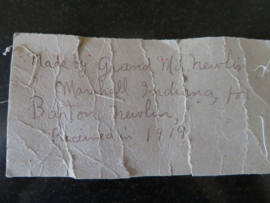 "Made by" Grand Ma Newlin
Marshall Indiana, for
Barton Newlin,
Received in 1919